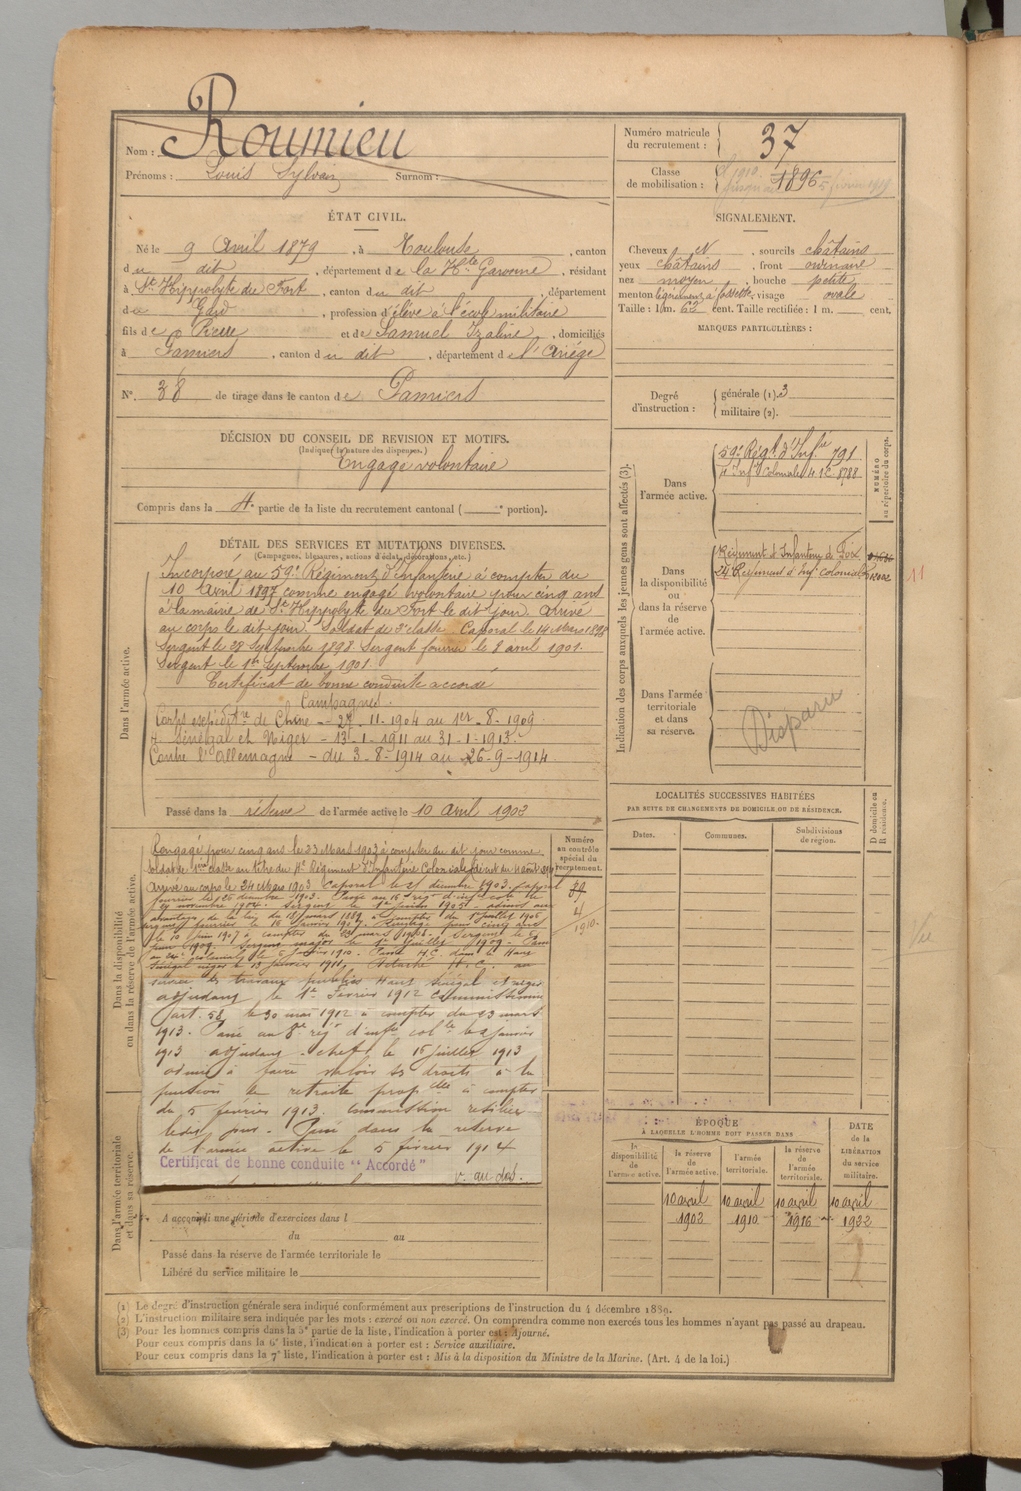 Nom : Roumieu
Prénoms : Louis Sylvain Surnom :
ÉTAT CIVIL.
Né le 9 Avril 1879, à Toulouse, canton
du dit, département de la Hte Garonne, résidant
à St Hippolyte du Fort, canton du dit, département
du Gard, profession d'élève à l'école militaire
fils de Pierre et de Samuel Izaline, domiciliés
à Pamiers, canton du dit, département de l'Ariège
N°. 38 de tirage dans le canton de Pamiers
DÉCISION DU CONSEIL DE REVISION ET MOTIFS.
(Indiquer la nature des dispenses.)
Engagé volontaire
Compris dans la 4e partie de la liste du recrutement cantonal ( portion).
DÉTAIL DES SERVICES ET MUTATIONS DIVERSES.
(Campagnes, blessures, actions d'éclat, décorations, etc.)
Dans l'armée active.
Incorporé au 59e Régiment d'Infanterie à compter du
10 Avril 1897 comme engagé volontaire pour cinq ans
à la mairie de St Hippolyte du Fort le dit jour. Arrivé
au corps le dit jour. Soldat de 2e classe. Caporal le 14 Mars 1898
Sergent le 28 Septembre 1898. Sergent fourrier le 8 avril 1901.
Sergent le 1er Septembre 1901.
Certificat de bonne conduite accordé
Campagnes
Corps expéditre de Chine - 27-11-1904 au 1er-8-1909.
Sénégal et Niger - 13-1-1911 au 31-1-1913.
Contre l'Allemagne - du 3-8-1914 au 26-9-1914.
Passé dans la réserve de l'armée active le 10 Avril 1902
Dans la disponibilité
ou dans la réserve de l'armée active.
Numéro
au contrôle
spécial du
recrutement.
4
1910
Rengagé pour cinq ans le 23 Mars 1903 à compter du dit jour comme
soldat de 1ère classe au titre du 4e Régiment d'Infanterie Coloniale
Arrivé au corps le 24 Mars 1903. Caporal le 25 décembre 1903. Caporal
fourrier le 26 décembre 1903. Passé au 16e rég d'inf col le
novembre 1904. Sergent le 1er 1905. admis aux
avantages de la loi du 18 mars 1889 à compter du 1er juillet 1906
sergent fourrier le 16 janvier 1907. Rengagé pour cinq ans
le 10 juin 1907 à compter du 23 mars 1908. Sergent le
1909. Sergent major le 1er juillet 1909. Passé
au 24e colonial le 5 1910. Passé H.C. dans le Haut
Sénégal niger le 13 janvier 1911. Détaché H.C. au
service des travaux publics Haut Sénégal et niger
adjudant le 1er Février 1912 Commissionné
(art. 58) le 30 mai 1912 à compter du 23 mars
1913. Passé au 8e rég d'infie colle le 9 janvier
1913 adjudant-chef le 16 juillet 1913
admis à faire valoir ses droits à la
pension de retraite proplle à compter
du 5 février 1913. Commission résiliée
ledit jour. Passé dans la réserve
de l'armée active le 5 février 1914
Certificat de bonne conduite "Accordé"
v. au dos.
Dans l'armée territoriale
et dans sa réserve.
A accompli une période d'exercices dans l
du au
Passé dans la réserve de l'armée territoriale le
Libéré du service militaire le
Numéro matricule
du recrutement : 37
Classe
de mobilisation : 1896
SIGNALEMENT.
Cheveux N, sourcils châtains
yeux châtains, front ordinaire
nez moyen, bouche petite
menton légèrement à fossette, visage ovale
Taille : 1 m. 62 cent. Taille rectifiée : 1 m. cent.
MARQUES PARTICULIÈRES :
Degré
d'instruction :
générale (1). 3
militaire (2).
Indication des corps auxquels les jeunes gens sont affectés (3).
NUMÉRO
au répertoire du corps.
Dans
l'armée active.
59e Régt d'Infie 791
4e Infie Coloniale 4 1C 8788
Dans
la disponibilité
ou
dans la réserve
de
l'armée active.
Régiment d'Infanterie de Foix
24e Régiment d'Infie coloniale
11
Dans l'armée
territoriale
et dans
sa réserve.
Disparu
LOCALITÉS SUCCESSIVES HABITÉES
PAR SUITE DE CHANGEMENTS DE DOMICILE OU DE RÉSIDENCE.
D domicile ou
R résidence.
Dates.
Communes.
Subdivisions
de région.
Vu
ÉPOQUE
À LAQUELLE L'HOMME DOIT PASSER DANS
DATE
de la
LIBÉRATION
du service
militaire.
la
disponibilité
de l'armée active.
la réserve
de
l'armée active.
l'armée
territoriale.
la réserve
de
l'armée
territoriale.
10 avril 10 avril 10 avril 10 avril
1902 1910 1916 1922
(1) Le degré d'instruction générale sera indiqué conformément aux prescriptions de l'instruction du 4 décembre 1889.
(2) L'instruction militaire sera indiquée par les mots : exercé ou non exercé. On comprendra comme non exercés tous les hommes n'ayant pas passé au drapeau.
(3) Pour les hommes compris dans la 5e partie de la liste, l'indication à porter est : Ajourné.
Pour ceux compris dans la 6e liste, l'indication à porter est : Service auxiliaire.
Pour ceux compris dans la 7e liste, l'indication à porter est : Mis à la disposition du Ministre de la Marine. (Art. 4 de la loi.)